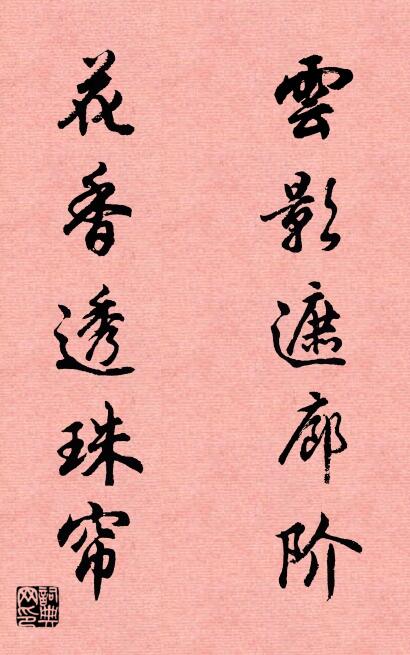 雲影遮廊阶
花香透珠帘
詞典網印